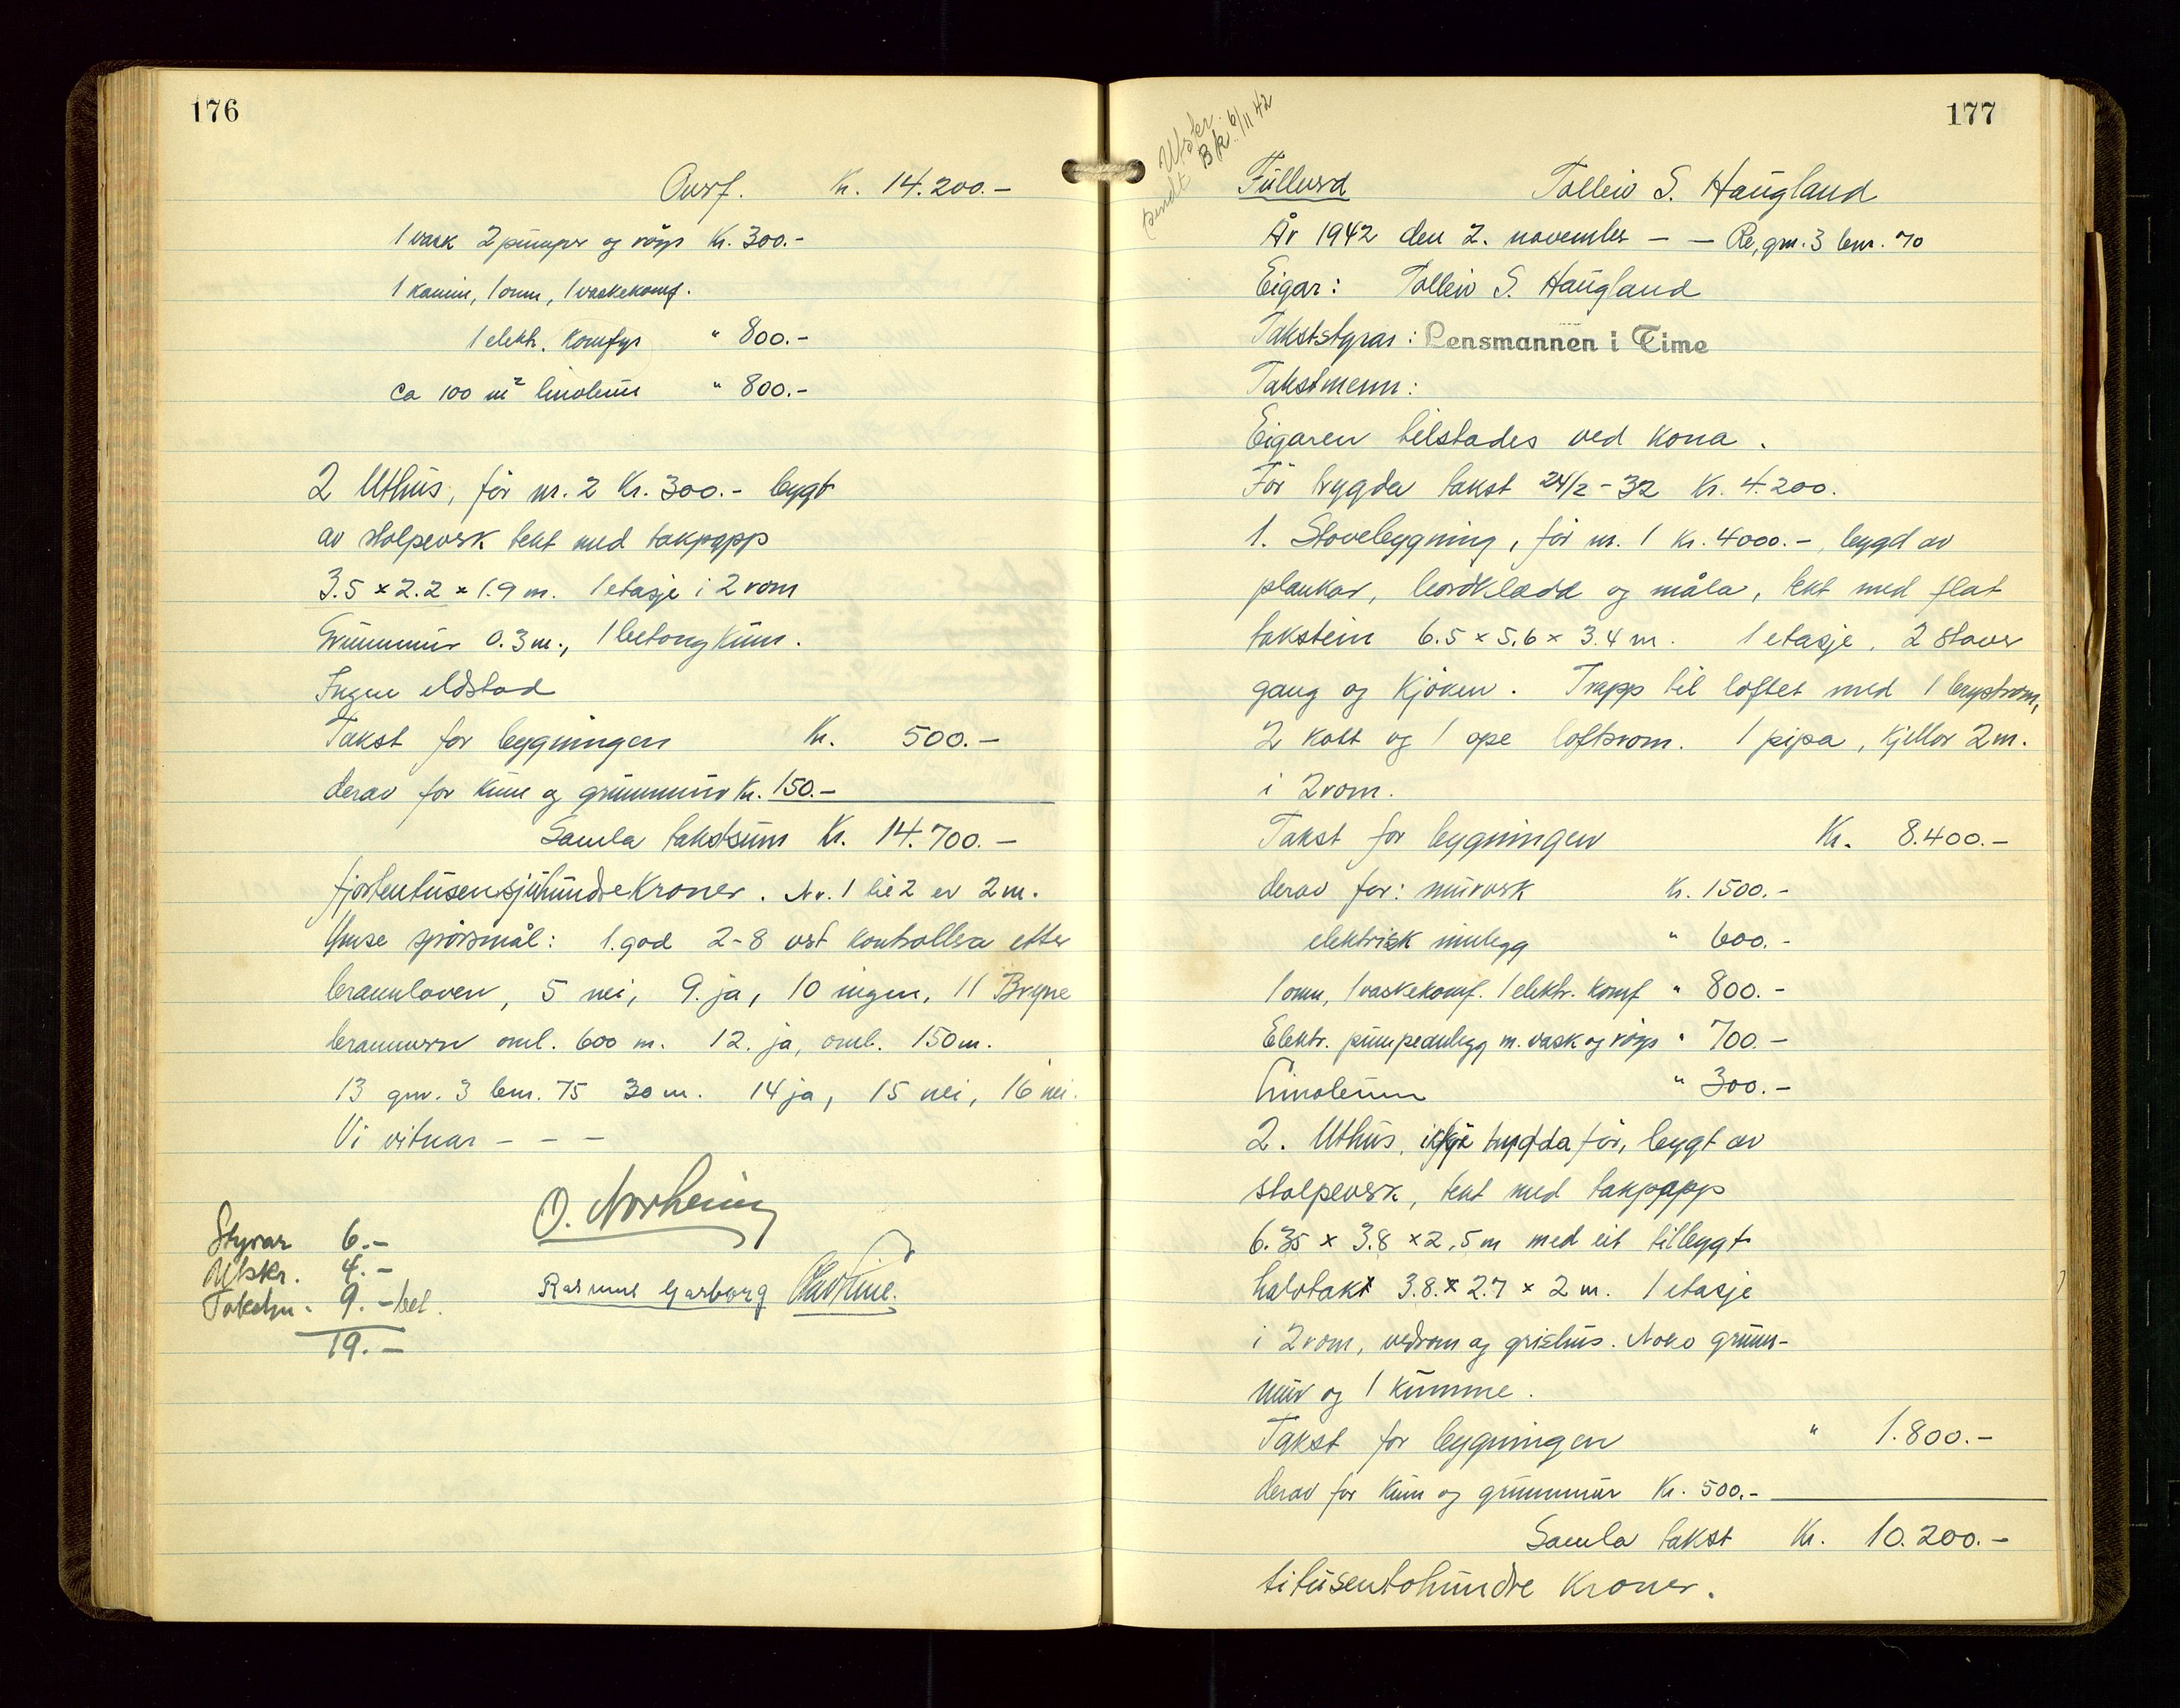 176
Overf. Kr. 14.200.-
1 vask 2 pumper og røyr Kr. 300.-
1 kamin, 1 omn, 1 vaskekomf.
1 elektr. komfyr " 800.-
ca 100 m² linoleum " 800.-
2 Uthus, før nr. 2 Kr. 300.- bygt
av stolpeverk tekt med takpapp
3.5 × 2.2 × 1.9 m. 1 etasje i 2 rom
Grunnmur 0.3 m., 1 betongkum.
Ingen eldstad
Takst for bygningen Kr. 500.-
derav for kum og grunnmur Kr. 150.-
Samla takstsum Kr. 14.700.-
fjortentusensjuhundrekroner. Nr. 1 til 2 er 2 m.
Ymse spørsmål: 1. god 2-8 vert kontrollera etter
brannloven, 5 nei, 9. ja, 10 ingen, 11 Bryne
brannvern oml. 600 m. 12. ja, oml. 150 m.
13 gnr. 3 bnr. 75 30 m. 14 ja, 15 nei, 16 nei.
Vi vitnar - - -
O. Norheim
Rasmus Garborg
Styrar 6.-
Utskr. 4.-
Takstm. 9.- bet.
19.-
177
Utskr.
sendt Bk. 6/11 42
Fullverd Tolleiv S. Haugland
År 1942 den 2. november - - Re, gnr. 3 bnr. 70
Eigar: Tolleiv S. Haugland
Takststyrar: Lensmannen i Time
Takstmenn:
Eigaren tilstades ved kona.
Før trygda takst 24/2-32 Kr. 4.200.
1. Stovebygning, før nr. 1 Kr. 4000.-, bygd av
plankar, bordkledd og måla, tekt med flat
takstein 6.5 × 5.6 × 3.4 m. 1 etasje, 2 stover
gang og kjøken. Trapp til loftet med 1 brystrom,
2 kott og 1 ope loftsrom. 1 pipa, kjellar 2 m.
i 2 rom.
Takst for bygningen Kr. 8.400.-
derav for: murverk Kr. 1500.-
elektrisk innlegg " 600.-
1 omn, 1 vaskekomf. 1 elektr. komf " 800.-
Elektr. pumpeanlegg m. vask og røyr " 700.-
Linoleum " 300.-
2. Uthus, ikkje trygda før, bygt av
stolpeverk, tekt med takpapp
6.35 × 3.8 × 2.5 m med eit tilbygt
halvtakt 3.8. × 2.7 × 2 m. 1 etasje
i 2 rom, vedrom og grishus. Noko grunn-
mur og 1 kumme.
Takst for bygningen " 1.800.-
derav for kum og grunnmur Kr. 500.-
Samla takst Kr. 10.200.-
titusentohundre kroner.